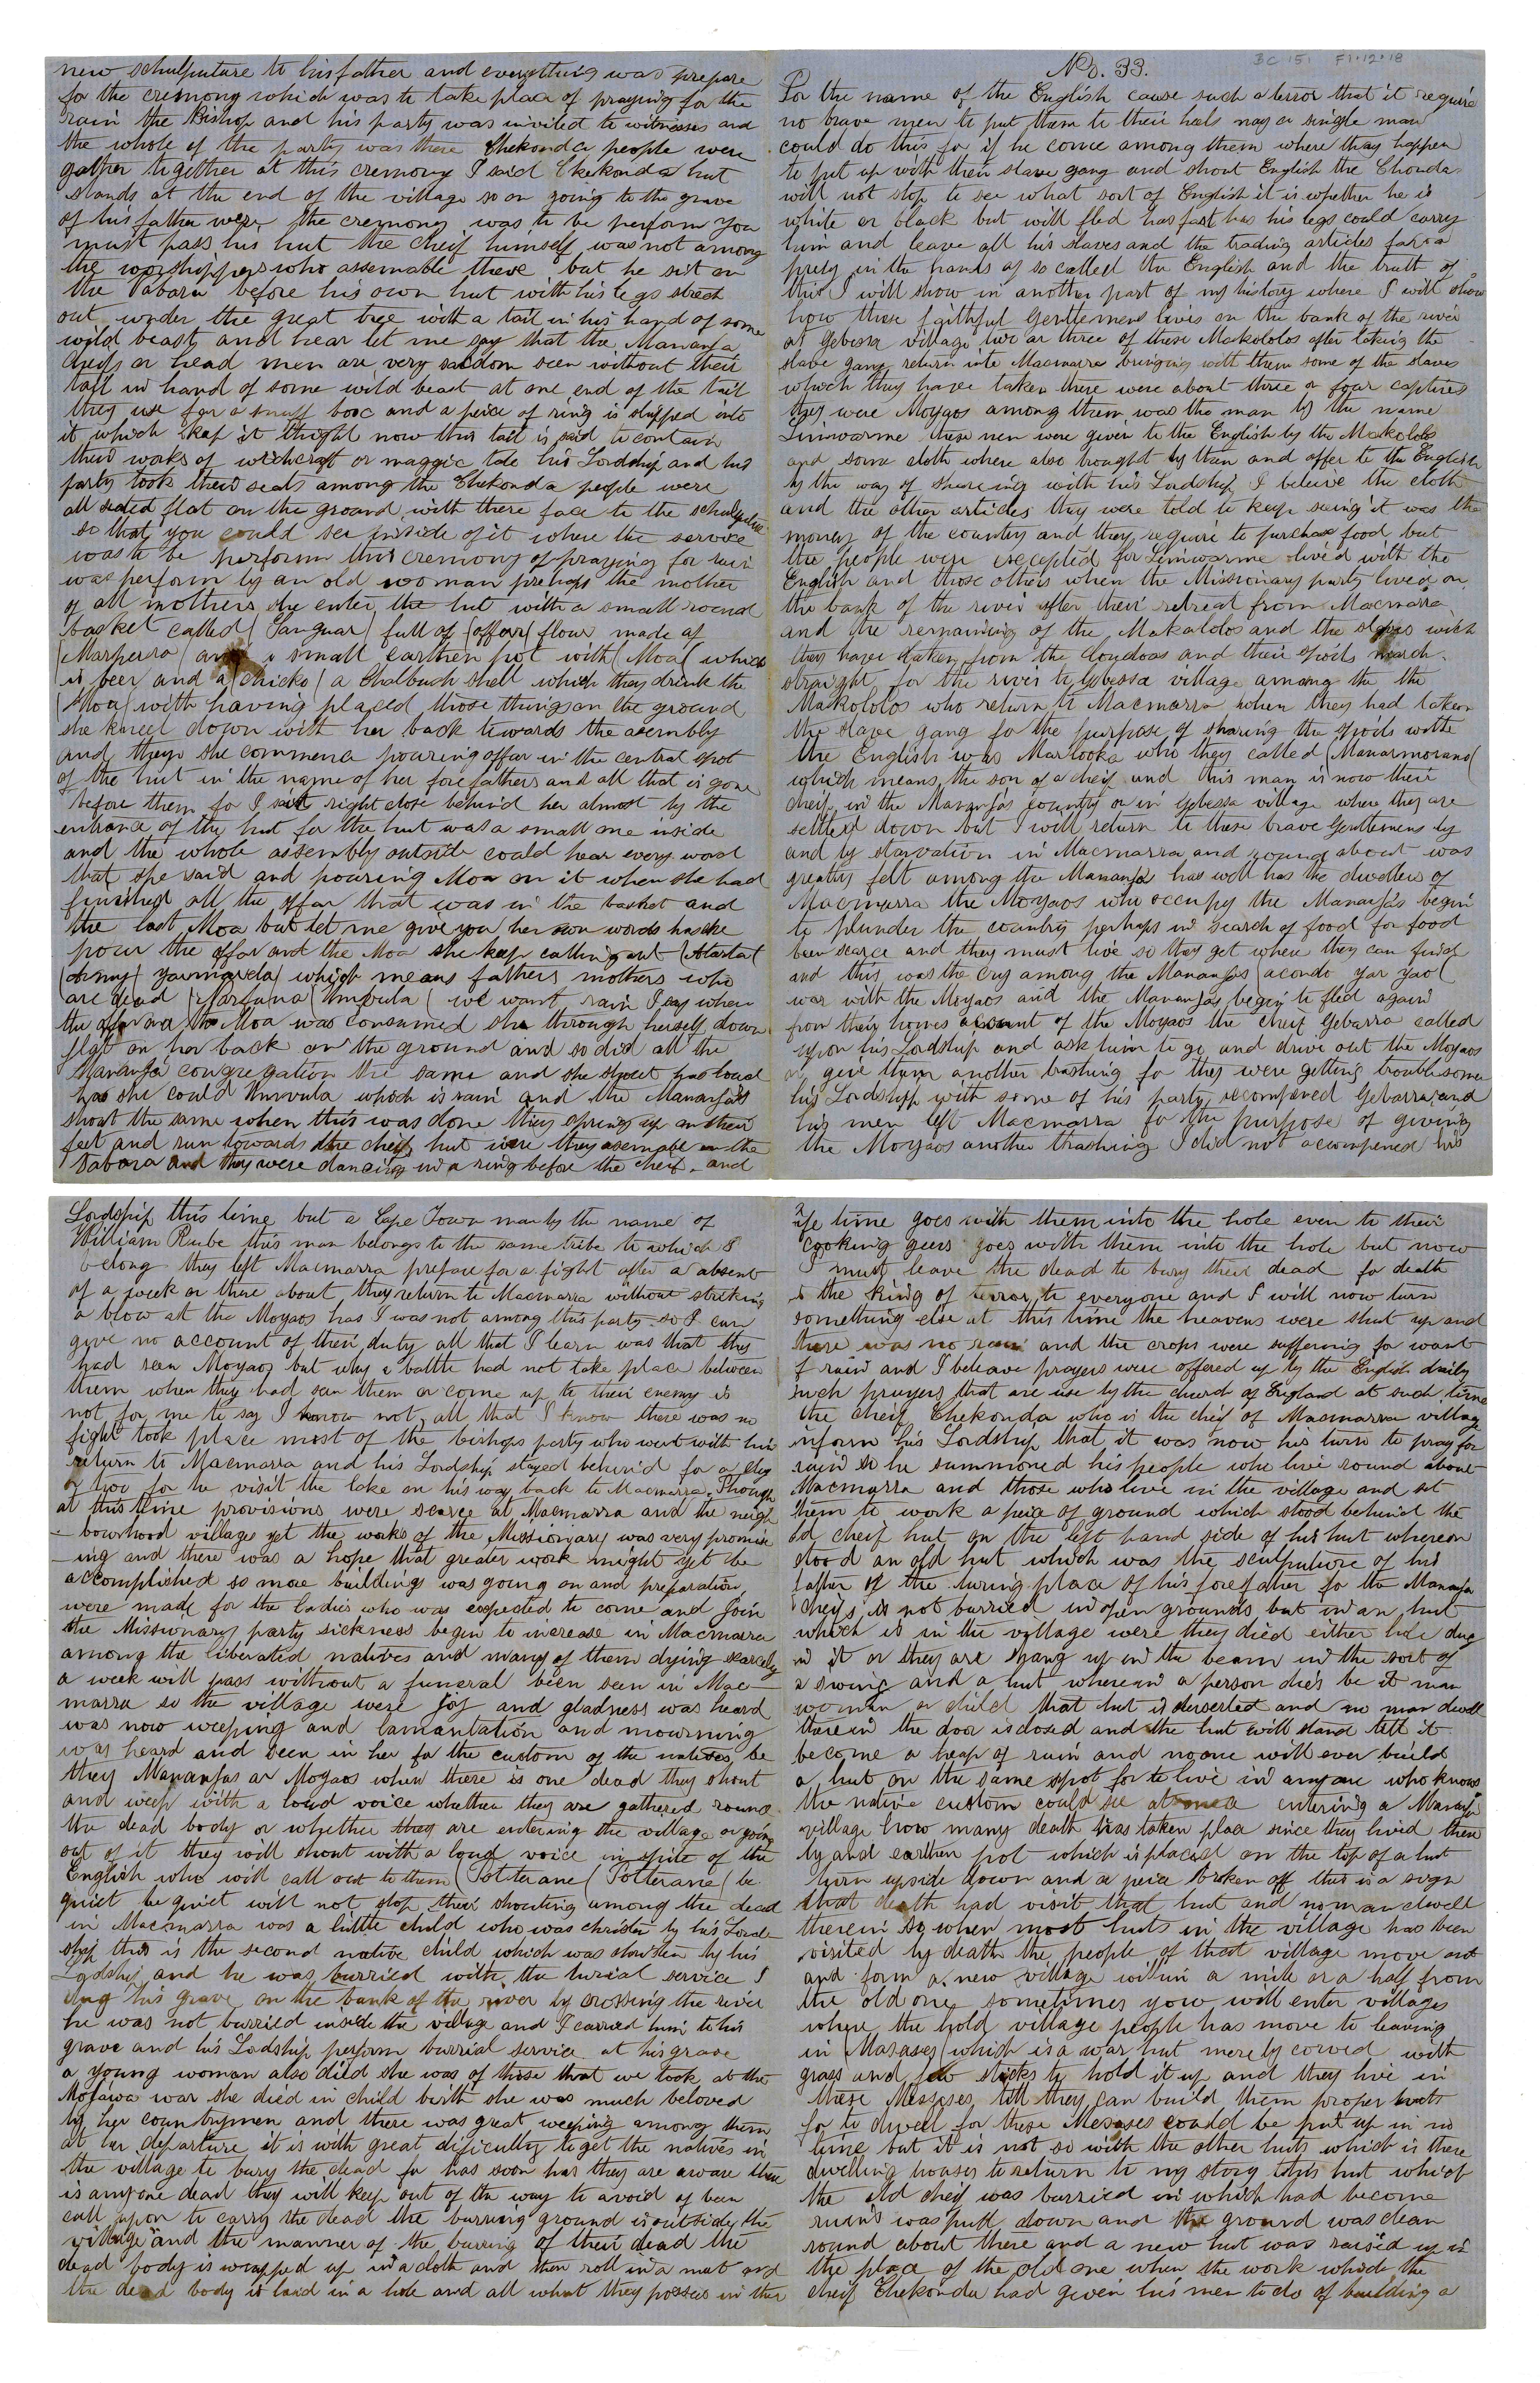 BC 151 F1·12·18
No. 33.
For the name of the English cause such a terror that it require
no brave men to put them to their heels nay a single man
could do this for if he come among them where they happen
to put up with their slave gang and shout English the Chondas
will not stop to see what sort of English it is whether he is
white or black but will fled has fast has his legs could carry
him and leave all his slaves and the trading articles for a
prey in the hands of so called the English and the truth of
this I will show in another part of my history where I will show
how these faithful Gentlemens lives on the bank of the river
at Gebessa village two or three of these Makololos after taking the
slave gang return into Macmarra bringing with them some of the slaves
which they have taken there were about three or four captives
they were Moyaos among them was the man by the name
Liniwarme these men were given to the English by the Makololos
and some cloth where also brought by them and offer to the English
by the way of shareing with his Lordship I beleive the cloth
and the other articles they were told to keep seing it was the
money of the country and they require to purchase food but
the people were excepted for Liniwarme lived with the
English and those others when the Missionary party lived on
the bank of the river after their retreat from Macmarra
and the remaining of the Makololos and the slaves wich
they have taken from the Coundoas and their spoils march
straight for the river to Gebessa village among the the
Makololos who return to Macmarra when they had taken
the slave gang for the purpose of sharing the spoils withe
the English was Marlooka who they called (Manarmorana(
which means the son of a cheif and this man is now their
cheif in the Mananjas country or in Gebessa village where they are
settled down but I will return to these brave Gentlemens by
and by starvation in Macmarra and round about was
greatly felt among the Mananja has well has the dwellers of
Macmarra the Moyaos who occupy the Mananjas begin
to plunder the country perhaps in search of food for food
been scarce and they must live so they get where they can find
and this was the cry among the Mananjas (acondo yar yao(
war with the Moyaos and the Mananjas begin to fled again
from their homes account of the Moyaos the cheif Gebarra called
upon his Lordship and ask him to go and drive out the Moyaos
or give them another bashing for they were getting troublesome
his Lordship with some of his party accompened Gebarra and
his men left Macmarra for the purpose of giving
the Moyaos another trashing I did not accompened his
Lordship this time but a Cape Town man by the name of
William Rube this man belongs to the same tribe to which I
belong they left Macmarra prepare for a fight after a absent
of a week or there about they return to Macmarra without striking
a blow at the Moyaos has I was not among this party so I can
give no account of their duty all that I learn was that they
had seen Moyaos but why a battle had not take place between
them when they had seen them or come up to their enemy is
not for me to say I know not, all that I know there was no
fight took place most of the bishops party who went with him
return to Macmarra and his Lordship stayed behind for a day
or two for he visit the lake on his way back to Macmarra, Though
at this time provisions were scarce at Macmarra and the neigh
-bourhood villages yet the woks of the Missionary was very promise
-ing and there was a hope that greater work might yet be
accomplished so more buildings was going on and preparation
were made for the ladies who was expected to come and join
the Missionary party sickness begin to increase in Macmarra
among the liberated natives and many of them dying scarcely
a week will pass without a funeral been seen in Mac-
marra so the village were joy and gladness was heard
was now weeping and lamantation and mowrning
was heard and seen in her for the custom of the natives be
they Mananjas or Moyaos when there is one dead they shout
and weep with a loud voice whether they are gathered round
the dead body or whether they are entering the village or going
out of it they will shout with a loud voice in spite of the
English who will call out to them (Potterane( Potterane( be
quiet be quiet will not stop their shouting among the dead
in Macmarra was a little child who was christen by his Lord-
ship this is the second native child which was christen by his
Lordship and he was burried with the burial service I
dug his grave on the bank of the river by crossing the river
he was not burried inside the village and I carried him to his
grave and his Lordship perform burrial service at his grave
a young woman also died she was of those that we took at the
Mosawa war she died in child birth she was much beloved
by her countrymen and there was great weeping among them
at her departure it is with great dificulty to get the natives in
the village to bury the dead for has soon has they are aware there
is anyone dead they will keep out of the way to avoid of been
call upon to carry the dead the burring ground is outside the
village and the manner of the buring of their dead the
dead body is wrapped up in a cloth and then roll in a mat and
the dead body is laid in a hole and all what they posses in their
life time goes with them into the hole even to their
cooking geers goes with them into the hole but now
I must leave the dead to bury their dead for death
is the king of terror to everyone and I will now turn
something else at this time the heavens were shut up and
there was no rain and the crops were suffering for want
of rain and I beleave prayers were offered up by the English daily
such prayers that are use by the church of England at such time
the cheif Chekonda who is the cheif of Macmarra village
inform his Lordship that it was now his turn to pray for
rain so he summoned his people who live round about
Macmarra and those who live in the village and set
them to work a peice of ground which stood behind the
old cheif hut on the left hand side of his hut whereon
stood an old hut which was the sculputure of his
father of the buring place of his forefather for the Mananja
cheifs is not burried in open grounds but in an hut
which is in the village were they died either hole dug
in it or they are hang up in the beam in the sort of
a swing and a hut wherein a person dies be it man
woman or child that hut is deserted and no man dwell
therein the door is closed and the hut will stand till it
become a heap of ruin and no one will ever build
a hut on the same spot for to live in anyone who knows
the native custom could see at once entering a Mananja
village how many death has taken place since they lived there
by and earthen pot which is placed on the top of a hut
turn upside down and a peice broken off this is a sign
that death had visit that hut and no man dwell
therein so when most huts in the village has been
visited by death the people of that village move out
and form a new village within a mile or a half from
the old one sometimes you will enter villages
where the hold village people has move to leaving
in (Masases( which is a war hut merely corved with
grass and few sticks to hold it up and they live in
these Messases till they can build them proper huts
for to dwell for these Mesases could be put up in no
time but it is not so with the other huts which is there
dwelling houses to return to my story this hut which
the old cheif was burried in which had become
ruins was pull down and the ground was clean
round about there and a new hut was raised up in
the place of the old one when the work which the
cheif Chekonda had given his men to do of building a
new schulputure to his father and everything was prepare
for the cremony which was to take place of praying for the
rain the Bishop and his party was invited to witnesses and
the whole of the party was there Chekonda people were
gather together at this cremony I said Chekonda hut
stands at the end of the village so on going to the grave
of his father were the cremony was to be perform you
must pass his hut the cheif himself was not among
the worshippers who assemable there but he sit on
the Dabara before his own hut with his legs strech
out under the great tree with a tail in his hand of some
wild beast and hear let me say that the Mananja
cheifs or head men are very saldom seen without their
tail in hand of some wild beast at one end of the tail
they use for a snuff box and a peice of ring is slipped into
it which kep it thight now this tail is said to contain
their woks of witchcraft or maggic tale his Lordship and his
party took their seats among the Chekonda people were
all seated flat on the ground with there face to the schulputure
so that you could see inside of it where the service
was to be perform this cremony of praying for rain
was perform by an old woman prehaps the mother
of all mothers she enter the hut with a small round
basket called (Sanguar( full of (offar( flour made of
(Marperra( and a small earthen pot with (Moa( which
is beer and a (chicko( a Chalbuch shell which they drink the
(Moa( with having placed those things on the ground
she kneel down with her back towards the asembly
and then she commence pouring offar in the central spot
of the hut in the name of her fore fathers and all that is gone
before them for I said right close behind her almost by the
entrance of the hut for the hut was a small one inside
and the whole assembly outside could hear every word
that she said and pouring Moa on it when she had
finished all the offar that was in the basket and
the last Moa but let me give you her own words has she
pour the offar and the Moa she keep calling out (Atartat
(army( yarmarda( which means fathers mothers who
are dead (Marfuna( Umvula( we want rain I say when
the offar and the Moa was consumed she through herself down
flat on her back on the ground and so did all the
Mananja congregation the same and she shout has loud
has she could Umvula which is rain and the Mananjas
shout the same when this was done they spring up on their
feet and run towards the cheif hut were they asemable on the
Dabara and they were dancing in a ring before the cheif and